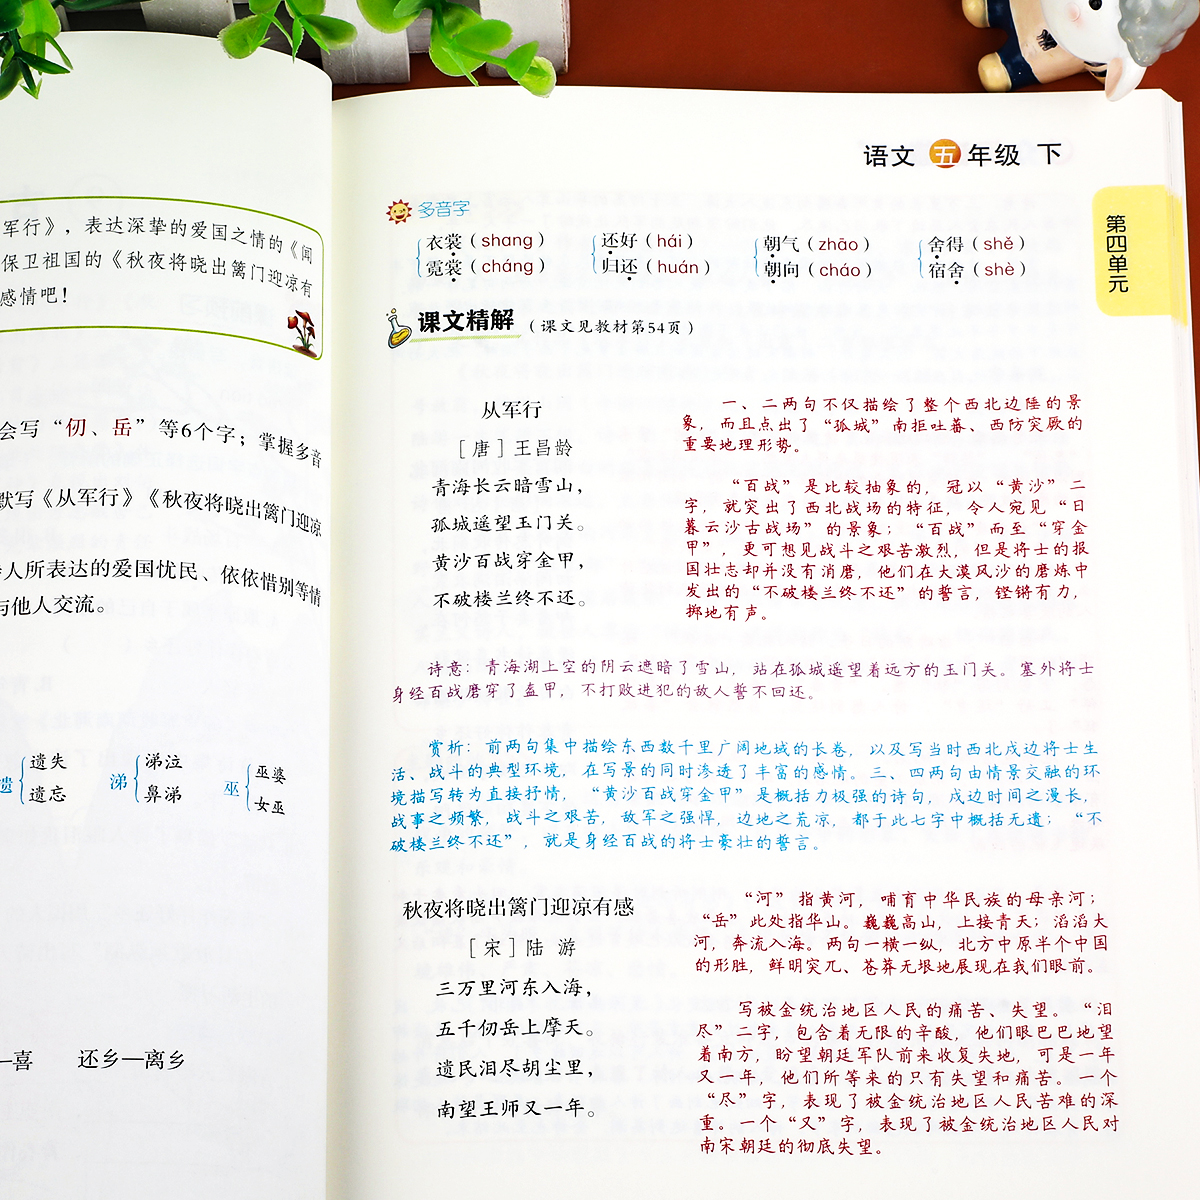 军行》，表达深挚的爱国之情的《闻
保卫祖国的《秋夜将晓出篱门迎凉有
感情吧！
会写“仞、岳”等6个字；掌握多音
默写《从军行》《秋夜将晓出篱门迎凉
人所表达的爱国忧民、依依惜别等情
与他人交流。
遗 遗失 涕 涕泣 巫 巫婆
遗忘 鼻涕 女巫
—喜 还乡—离乡
语文 五 年级 下
第四单元
多音字
衣裳（shang） 还好（hái） 朝气（zhāo） 舍得（shě）
霓裳（cháng） 归还（huán） 朝向（cháo） 宿舍（shè）
课文精解（课文见教材第54页）
从军行
［唐］王昌龄
青海长云暗雪山，
孤城遥望玉门关。
黄沙百战穿金甲，
不破楼兰终不还。
一、二两句不仅描绘了整个西北边陲的景
象，而且点出了“孤城”南拒吐蕃、西防突厥的
重要地理形势。
“百战”是比较抽象的，冠以“黄沙”二
字，就突出了西北战场的特征，令人宛见“日
暮云沙古战场”的景象；“百战”而至“穿金
甲”，更可想见战斗之艰苦激烈，但是将士的报
国壮志却并没有消磨，他们在大漠风沙的磨炼中
发出的“不破楼兰终不还”的誓言，铿锵有力，
掷地有声。
诗意：青海湖上空的阴云遮暗了雪山，站在孤城遥望着远方的玉门关。塞外将士
身经百战磨穿了盔甲，不打败进犯的敌人誓不回还。
赏析：前两句集中描绘东西数千里广阔地域的长卷，以及写当时西北戍边将士生
活、战斗的典型环境，在写景的同时渗透了丰富的感情。三、四两句由情景交融的环
境描写转为直接抒情，“黄沙百战穿金甲”是概括力极强的诗句，戍边时间之漫长，
战事之频繁，战斗之艰苦，敌军之强悍，边地之荒凉，都于此七字中概括无遗；“不
破楼兰终不还”，就是身经百战的将士豪壮的誓言。
秋夜将晓出篱门迎凉有感
［宋］陆 游
三万里河东入海，
五千仞岳上摩天。
遗民泪尽胡尘里，
南望王师又一年。
“河”指黄河，哺育中华民族的母亲河；
“岳”此处指华山。巍巍高山，上接青天；滔滔大
河，奔流入海。两句一横一纵，北方中原半个中国
的形胜，鲜明突兀、苍莽无垠地展现在我们眼前。
写被金统治地区人民的痛苦、失望。“泪
尽”二字，包含着无限的辛酸，他们眼巴巴地望
着南方，盼望朝廷军队前来收复失地，可是一年
又一年，他们所等来的只有失望和痛苦。一个
“尽”字，表现了被金统治地区人民苦难的深
重。一个“又”字，表现了被金统治地区人民对
南宋朝廷的彻底失望。